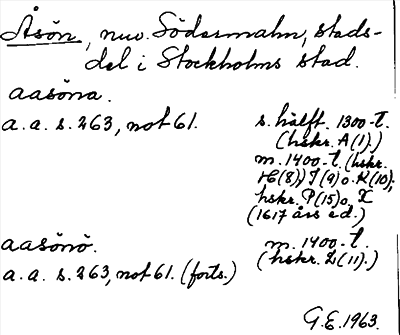 Åsön, nuv. Södermalm, stads-
del i Stockholms stad.
aasöna.
a.a. s. 263, not 61. s. hälft. 1300-t.
(hskr. A(1).)
m. 1400-t. (hskr.
H(8), I(9) o. K(10);
hskr. P(15) o. X
(1617 års ed.)
aasönö. m. 1400-t.
a.a. s. 263, not 61. (forts.) (hskr. L(11).)
G.E. 1963.